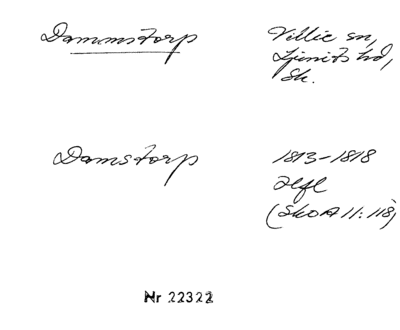 Dammstorp
Villie sn,
Ljunits hd,
Sk.
Damstorp
1813-1818
Hfl
(SkOA 11:118)
Nr 22322